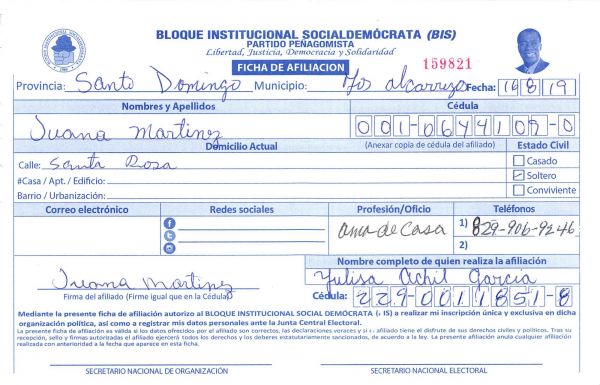 BLOQUE INSTITUCIONAL SOCIALDEMÓCRATA (BIS)
PARTIDO PEÑAGOMISTA
Libertad, Justicia, Democracia y Solidaridad
FICHA DE AFILIACION
159821
Provincia: Santo Domingo Municipio: los alcarrizo Fecha: 16 8 19
Nombres y Apellidos Cédula
Juana Martinez 001-0644107-0
Domicilio Actual (Anexar copia de cédula del afiliado) Estado Civil
Calle: Santa Rosa Casado
#Casa / Apt. / Edificio: Soltero
Barrio / Urbanización: Conviviente
Correo electrónico Redes sociales Profesión/Oficio Teléfonos
ama de casa 1) 829-906-9246
2)
Nombre completo de quien realiza la afiliación
Juana Martinez Yulisa Achil Garcia
Firma del afiliado (Firme igual que en la Cédula) Cédula: 229-0011851-8
Mediante la presente ficha de afiliación autorizo al BLOQUE INSTITUCIONAL SOCIAL DEMÓCRATA (BIS) a realizar mi inscripción única y exclusiva en dicha
organización política, así como a registrar mis datos personales ante la Junta Central Electoral.
La presente ficha de afiliación es válida si los datos ofrecidos por el afiliado son correctos, las declaraciones veraces y si el afiliado tiene el disfrute de sus derechos civiles y políticos. Tras su
recepción, sello y firmas autorizadas el afiliado ejercerá todos los derechos y los deberes estatutariamente sancionados, de acuerdo a la ley. La presente afiliación anula cualquier afiliación
realizada con anterioridad a la fecha que aparece en esta ficha.
SECRETARIO NACIONAL DE ORGANIZACIÓN SECRETARIO NACIONAL ELECTORAL